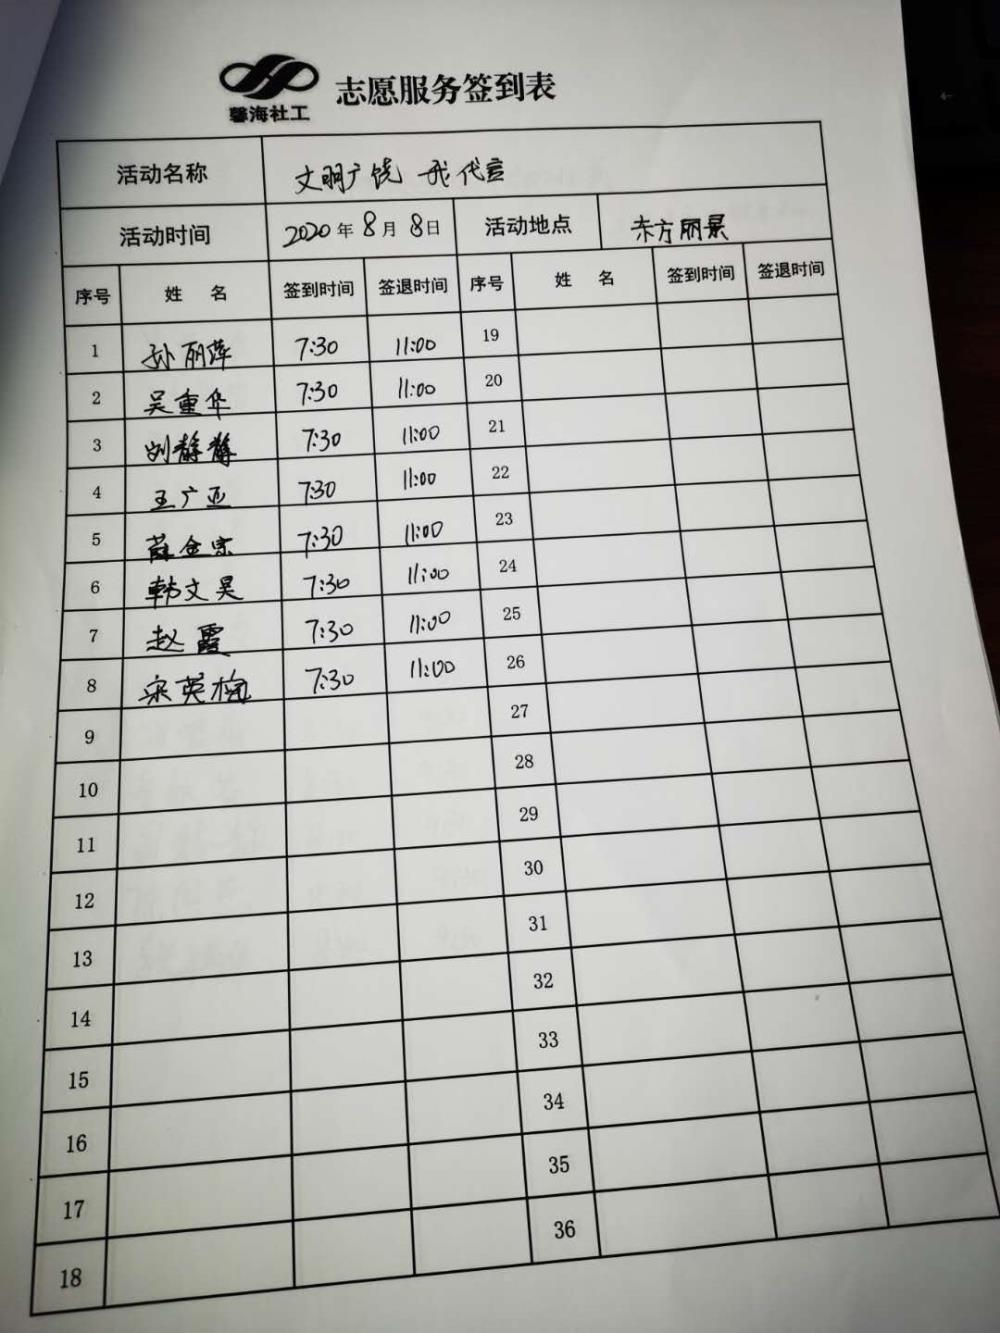 馨海社工
志愿服务签到表
活动名称 文明广饶 我代言
活动时间 2020年8月8日 活动地点 东方丽景
序号 姓 名 签到时间 签退时间 序号 姓 名 签到时间 签退时间
1 孙丽萍 7:30 11:00 19
2 吴重华 7:30 11:00 20
3 刘静静 7:30 11:00 21
4 王广亚 7:30 11:00 22
5 薛金宗 7:30 11:00 23
6 韩文昊 7:30 11:00 24
7 赵霞 7:30 11:00 25
8 宋英梅 7:30 11:00 26
9 27
10 28
11 29
12 30
13 31
14 32
15 33
16 34
17 35
18 36